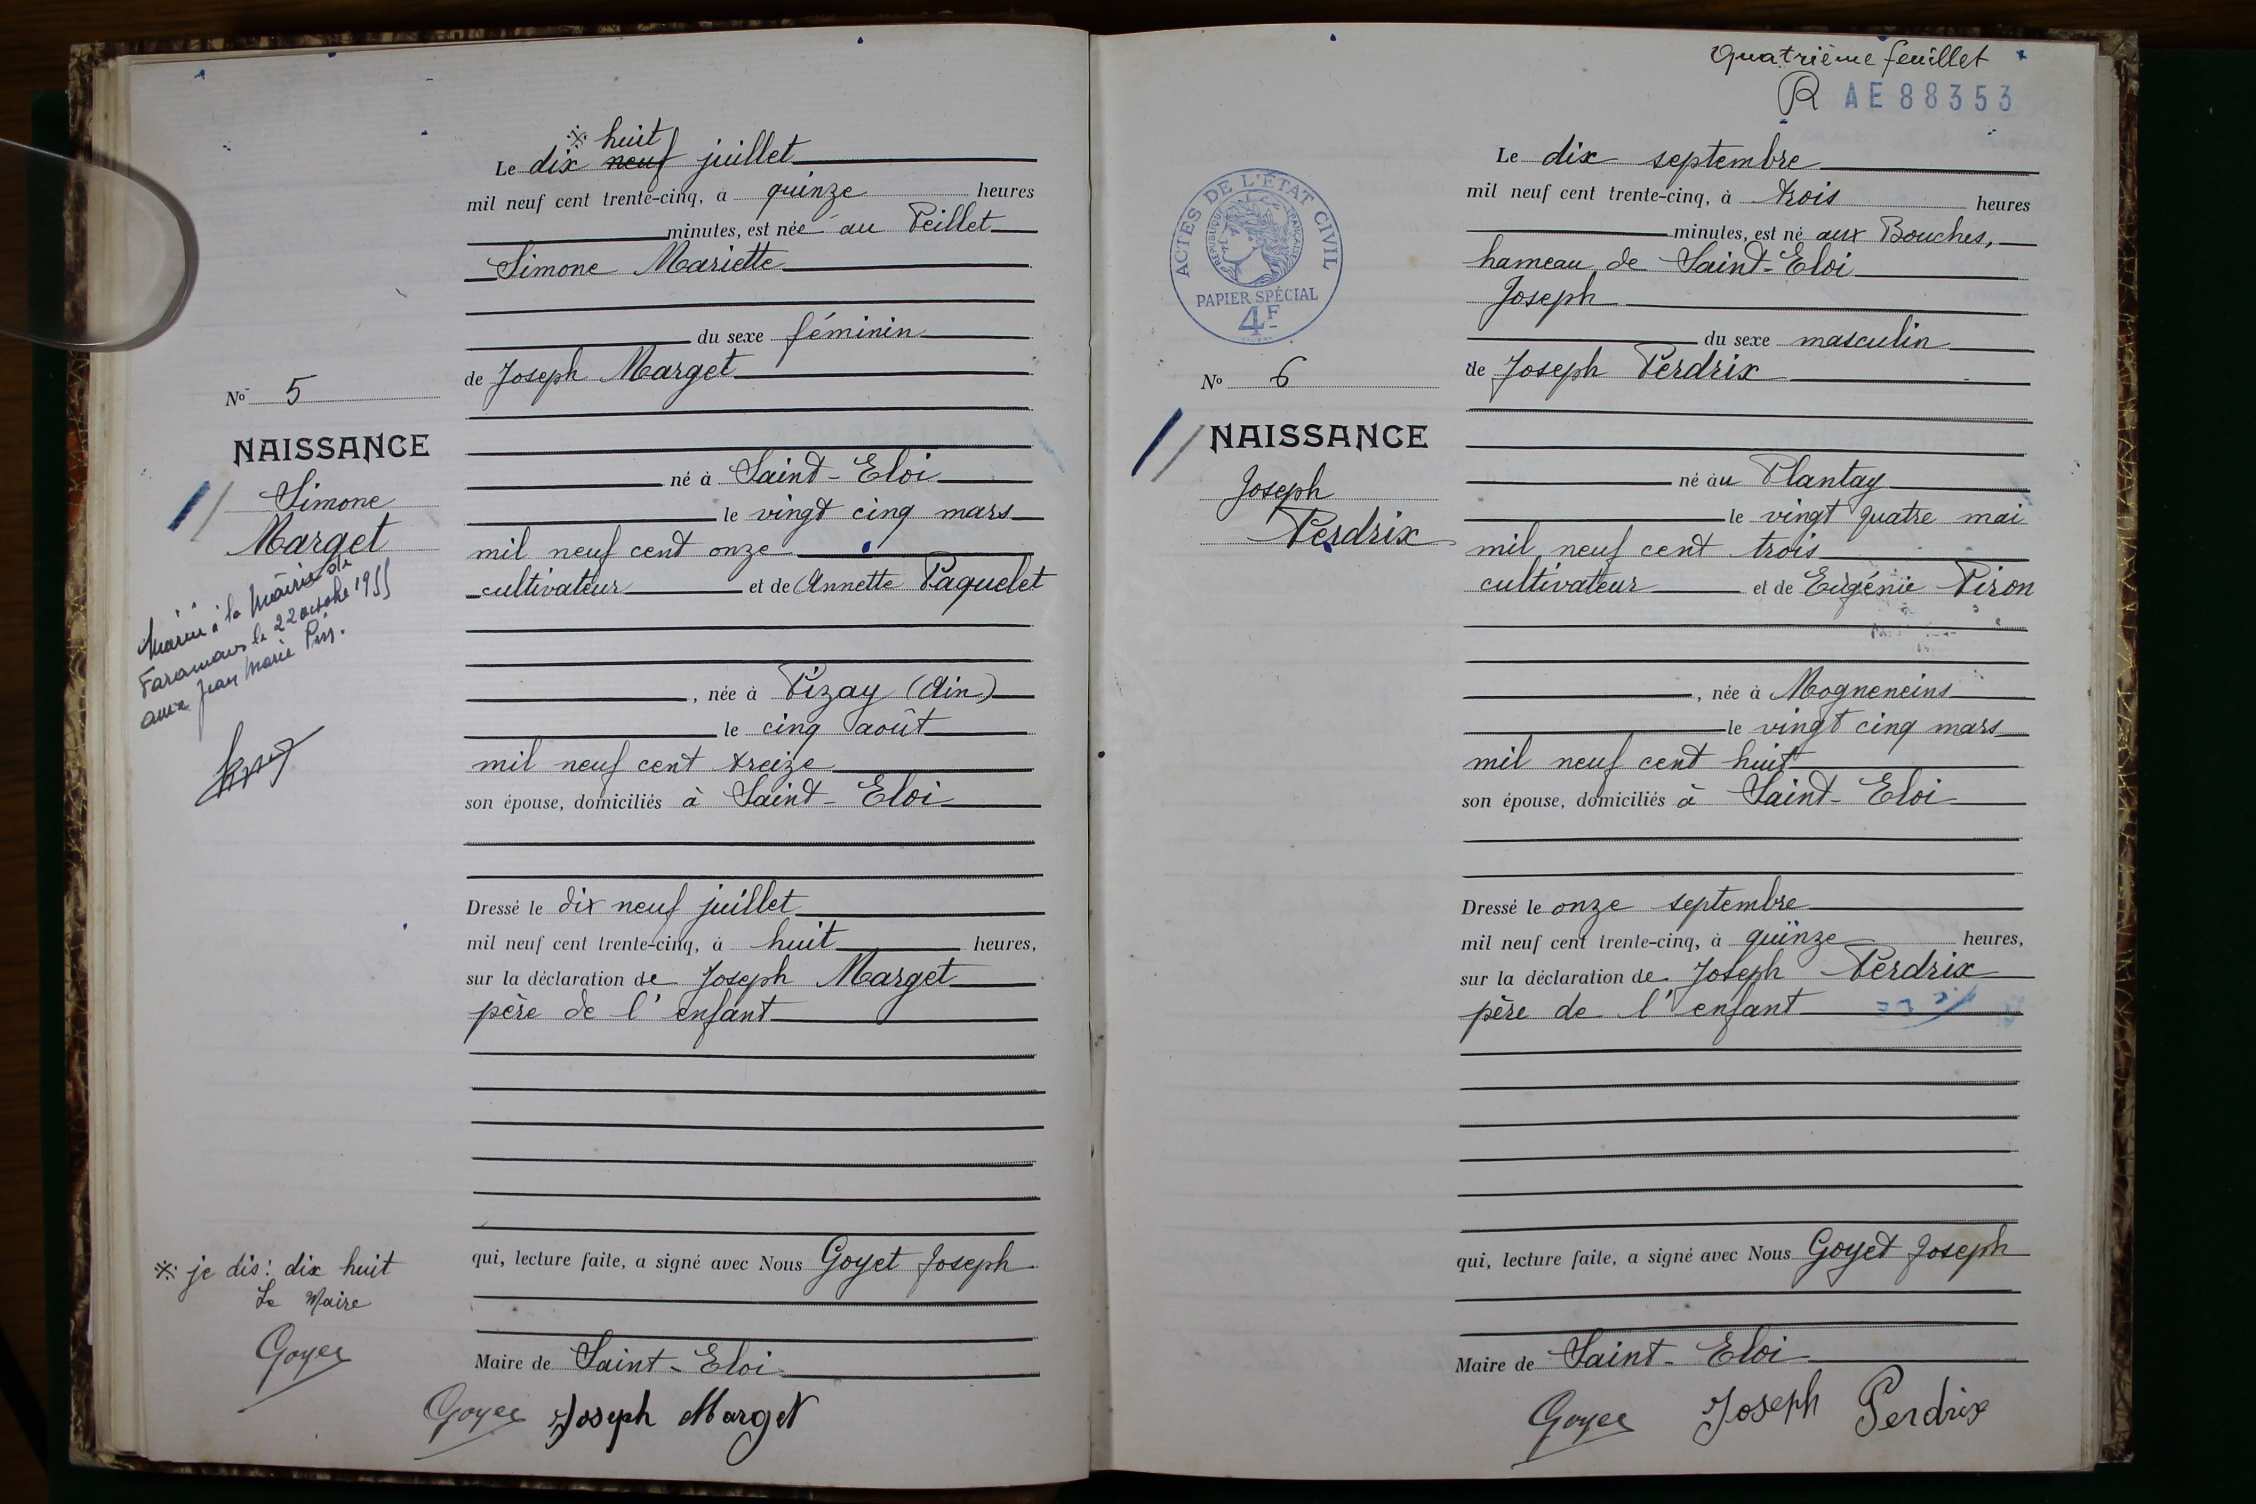 ※ huit
Le dix neuf juillet
mil neuf cent trente-cinq, à quinze heures
minutes, est née au Peillet
Simone Mariette
du sexe féminin
de Joseph Marget
né à Saint-Eloi
le vingt cinq mars
mil neuf cent onze
cultivateur et de Annette Paquelet
, née à Pizay (Ain)
le cinq août
mil neuf cent treize
son épouse, domiciliés à Saint-Eloi
Dressé le dix neuf juillet
mil neuf cent trente-cinq, à huit heures,
sur la déclaration de Joseph Marget
père de l'enfant
qui, lecture faite, a signé avec Nous Goyet Joseph
Maire de Saint-Eloi
Goyet Joseph Marget
No 5
NAISSANCE
Simone
Marget
Mariée à la Mairie de
Faramans le 22 octobre 1955
avec Jean Marie
※ je dis: dix huit
Le Maire
Goyet
Quatrième feuillet
R AE88353
ACTES DE L'ÉTAT CIVIL
RÉPUBLIQUE FRANÇAISE
PAPIER SPÉCIAL
4F
No 6
NAISSANCE
Joseph
Perdrix
Le dix septembre
mil neuf cent trente-cinq, à trois heures
minutes, est né aux Bouches,
hameau de Saint-Eloi
Joseph
du sexe masculin
de Joseph Perdrix
né au Plantay
le vingt quatre mai
mil neuf cent trois
cultivateur et de Eugénie Piron
, née à Mogneneins
le vingt cinq mars
mil neuf cent huit
son épouse, domiciliés à Saint-Eloi
Dressé le onze septembre
mil neuf cent trente-cinq, à quinze heures,
sur la déclaration de Joseph Perdrix
père de l'enfant
qui, lecture faite, a signé avec Nous Goyet Joseph
Maire de Saint-Eloi
Goyet Joseph Perdrix